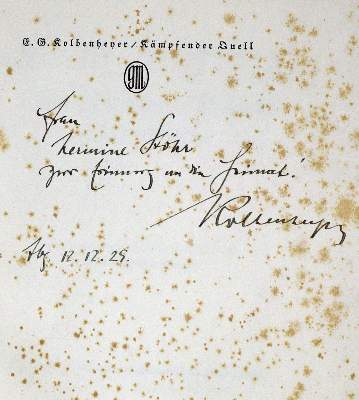 E. G. Kolbenheyer / Kämpfender Quell
GM
Frau
Hermine Stöhr
zur Erinnerg an die Heimat!
Kolbenheyer
12. 12. 29.